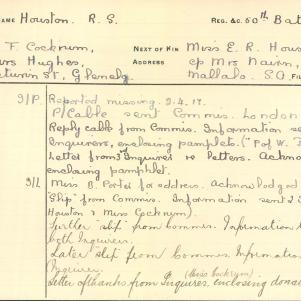 NAME Houston. R. S. REG. &c. 50th Bat
F. Cockrum, NEXT OF KIN Miss E. R. Hous
rs Hughes, ADDRESS c/o Mrs Nairn,
St, Glenelg. Mallala. S.A. FIL
Reported missing. 2.4.17.
Cable sent Commis. London
Reply cable from Commis. Information sen
Enquirers, enclosing pamphlet. ("P of W. F
Letter from Inquirer re letters. Acknow
enclosing pamphlet.
Miss B. Porter for address. Acknowledged
"Slip" from Commis. Information sent 2 I
Houston & Miss Cockrum).
Further "slip" from Commis. Information t
both Inquirers.
Later slip from Commis. Information
Inquirer.
(Miss Cockrum).
Letter of thanks from Inquirer, enclosing dona